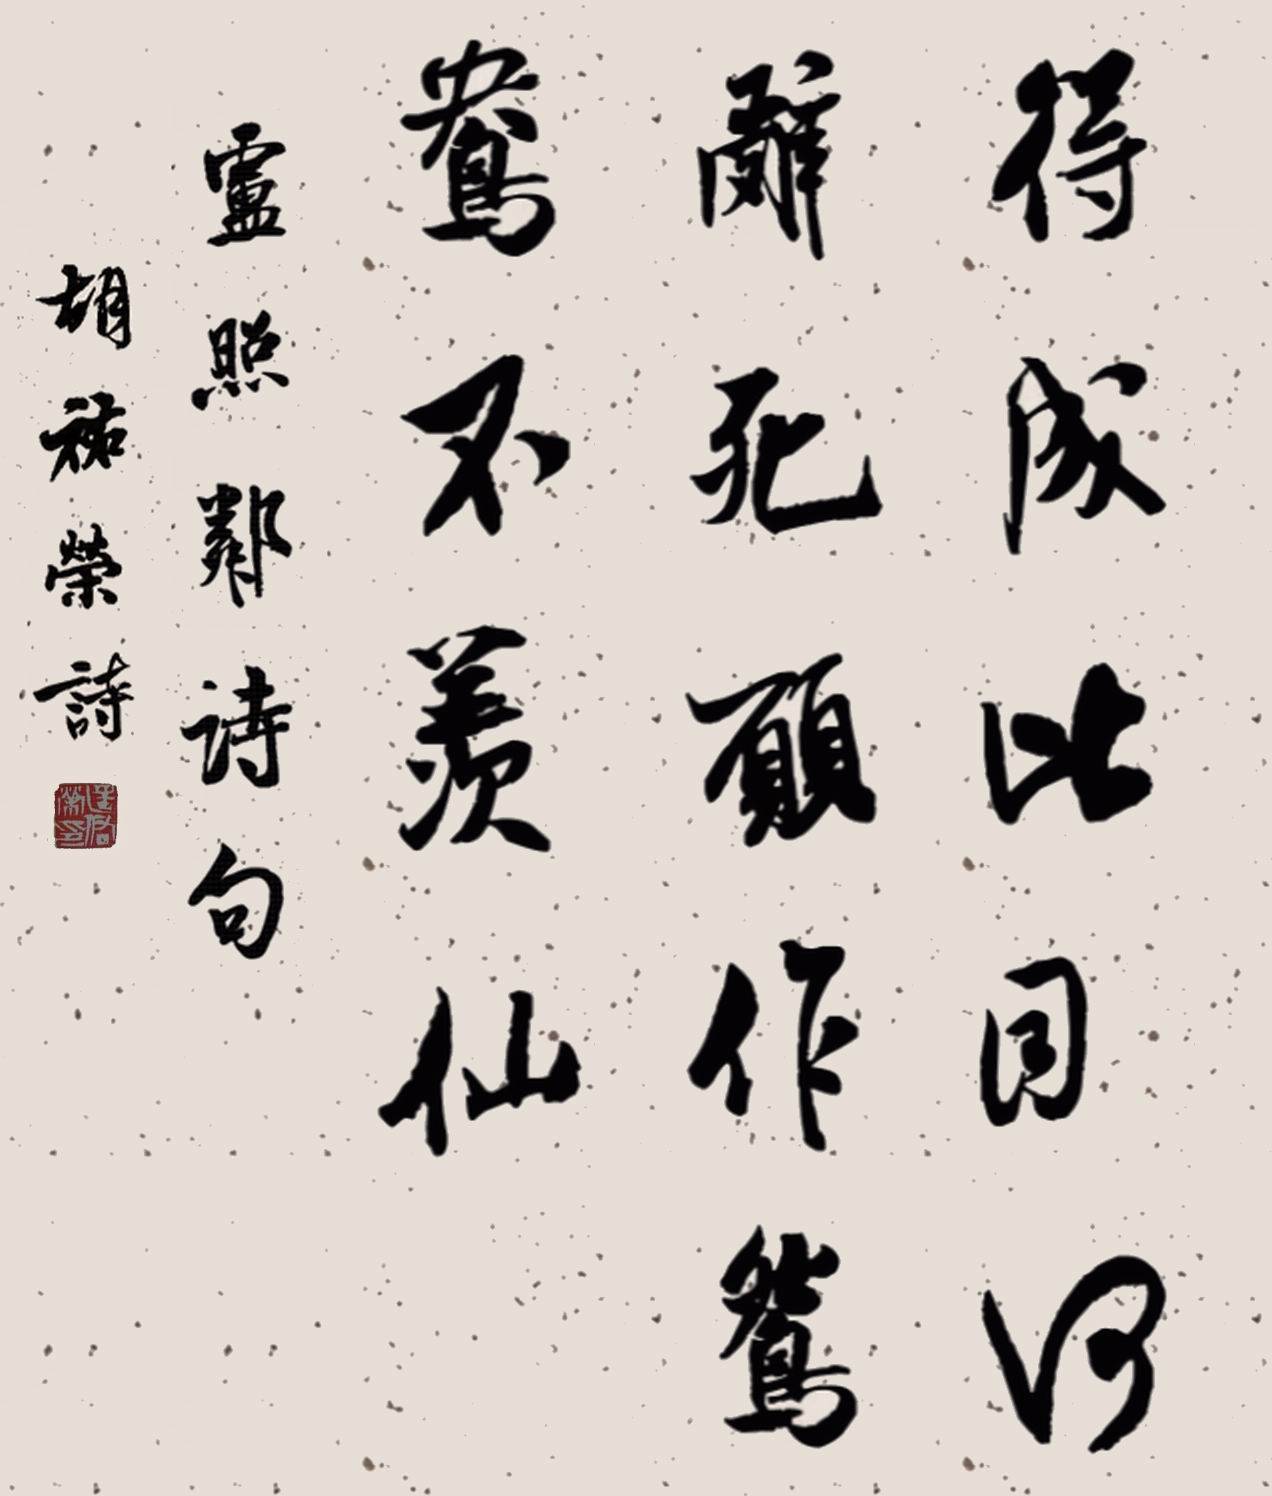 得成比目何
辭死願作鴛
鴦不羨仙
盧照鄰詩句
胡祐榮詩